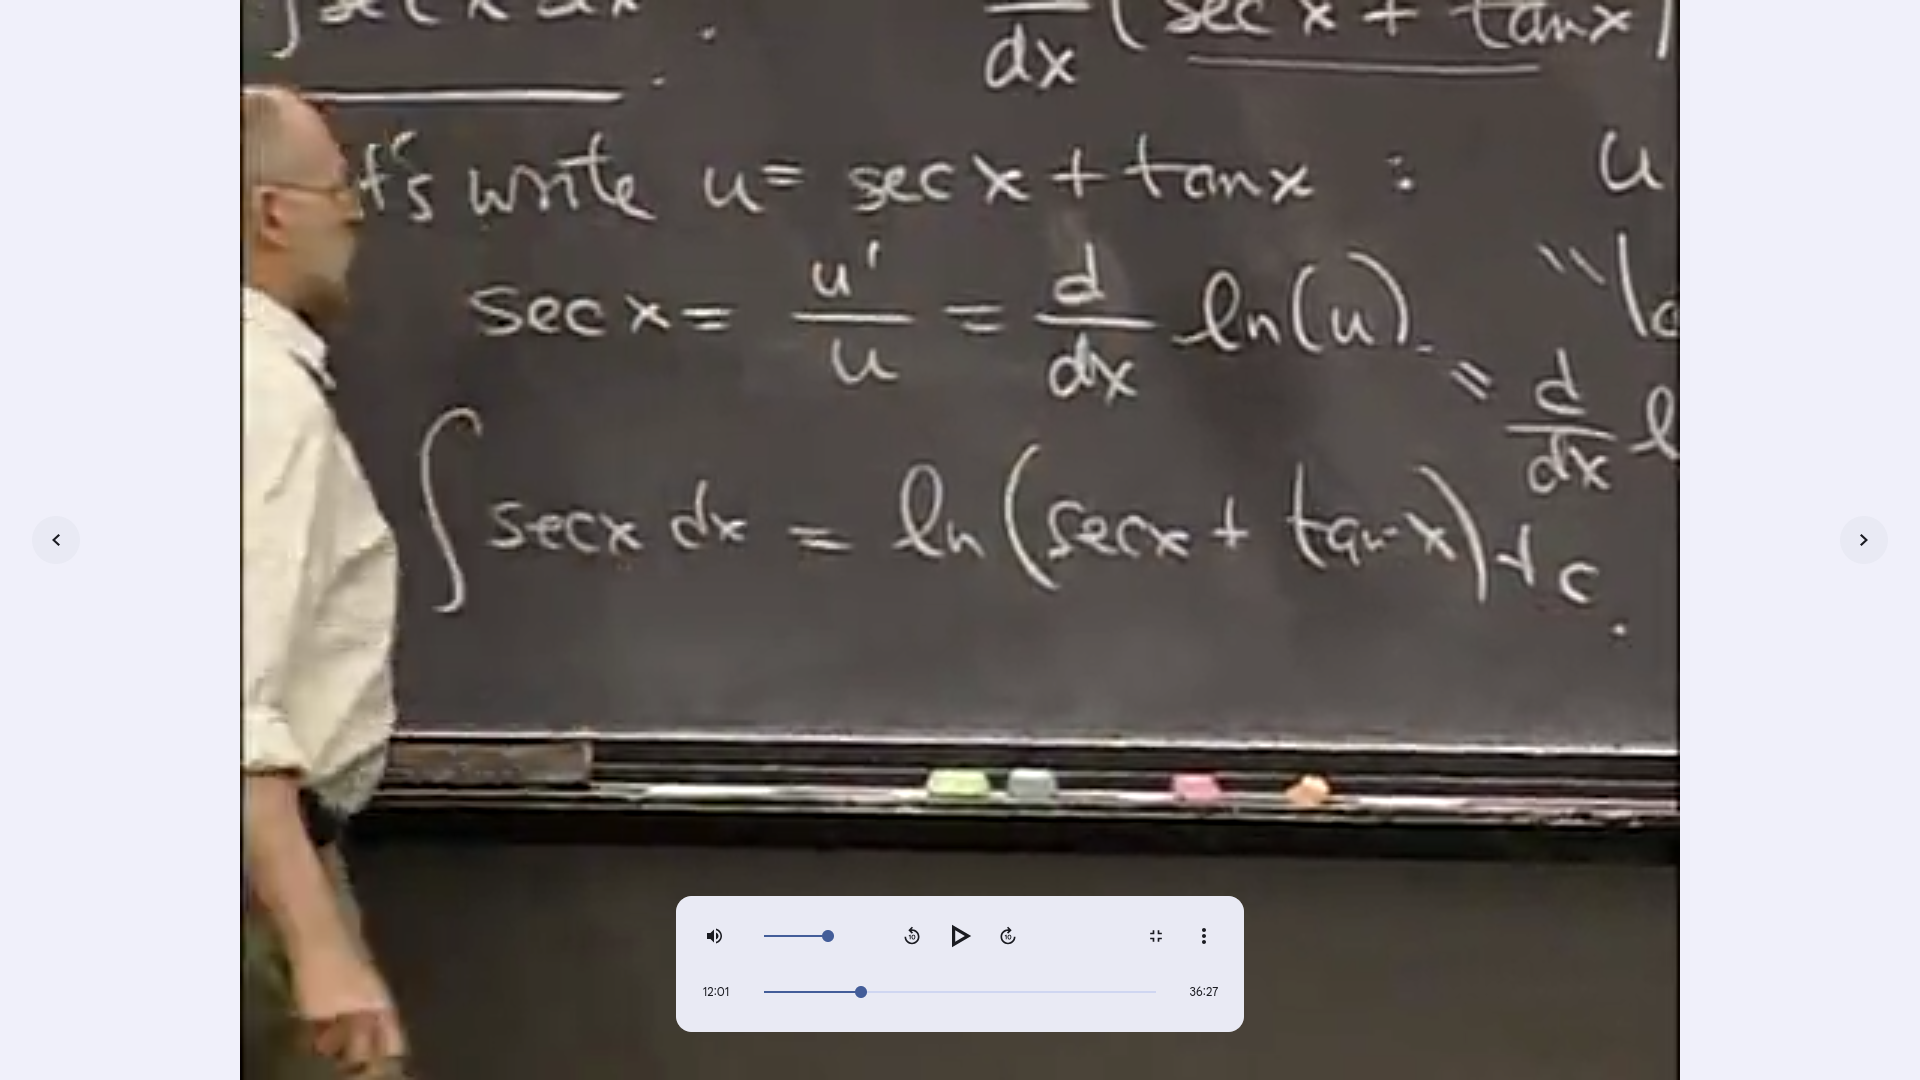 ∫sec x dx .
d/dx (sec x + tan x)
t's write u = sec x + tan x : u
sec x = u'/u = d/dx ln(u).
= d/dx l
∫ sec x dx = ln(sec x + tan x) + c.
10 10
12:01 36:27